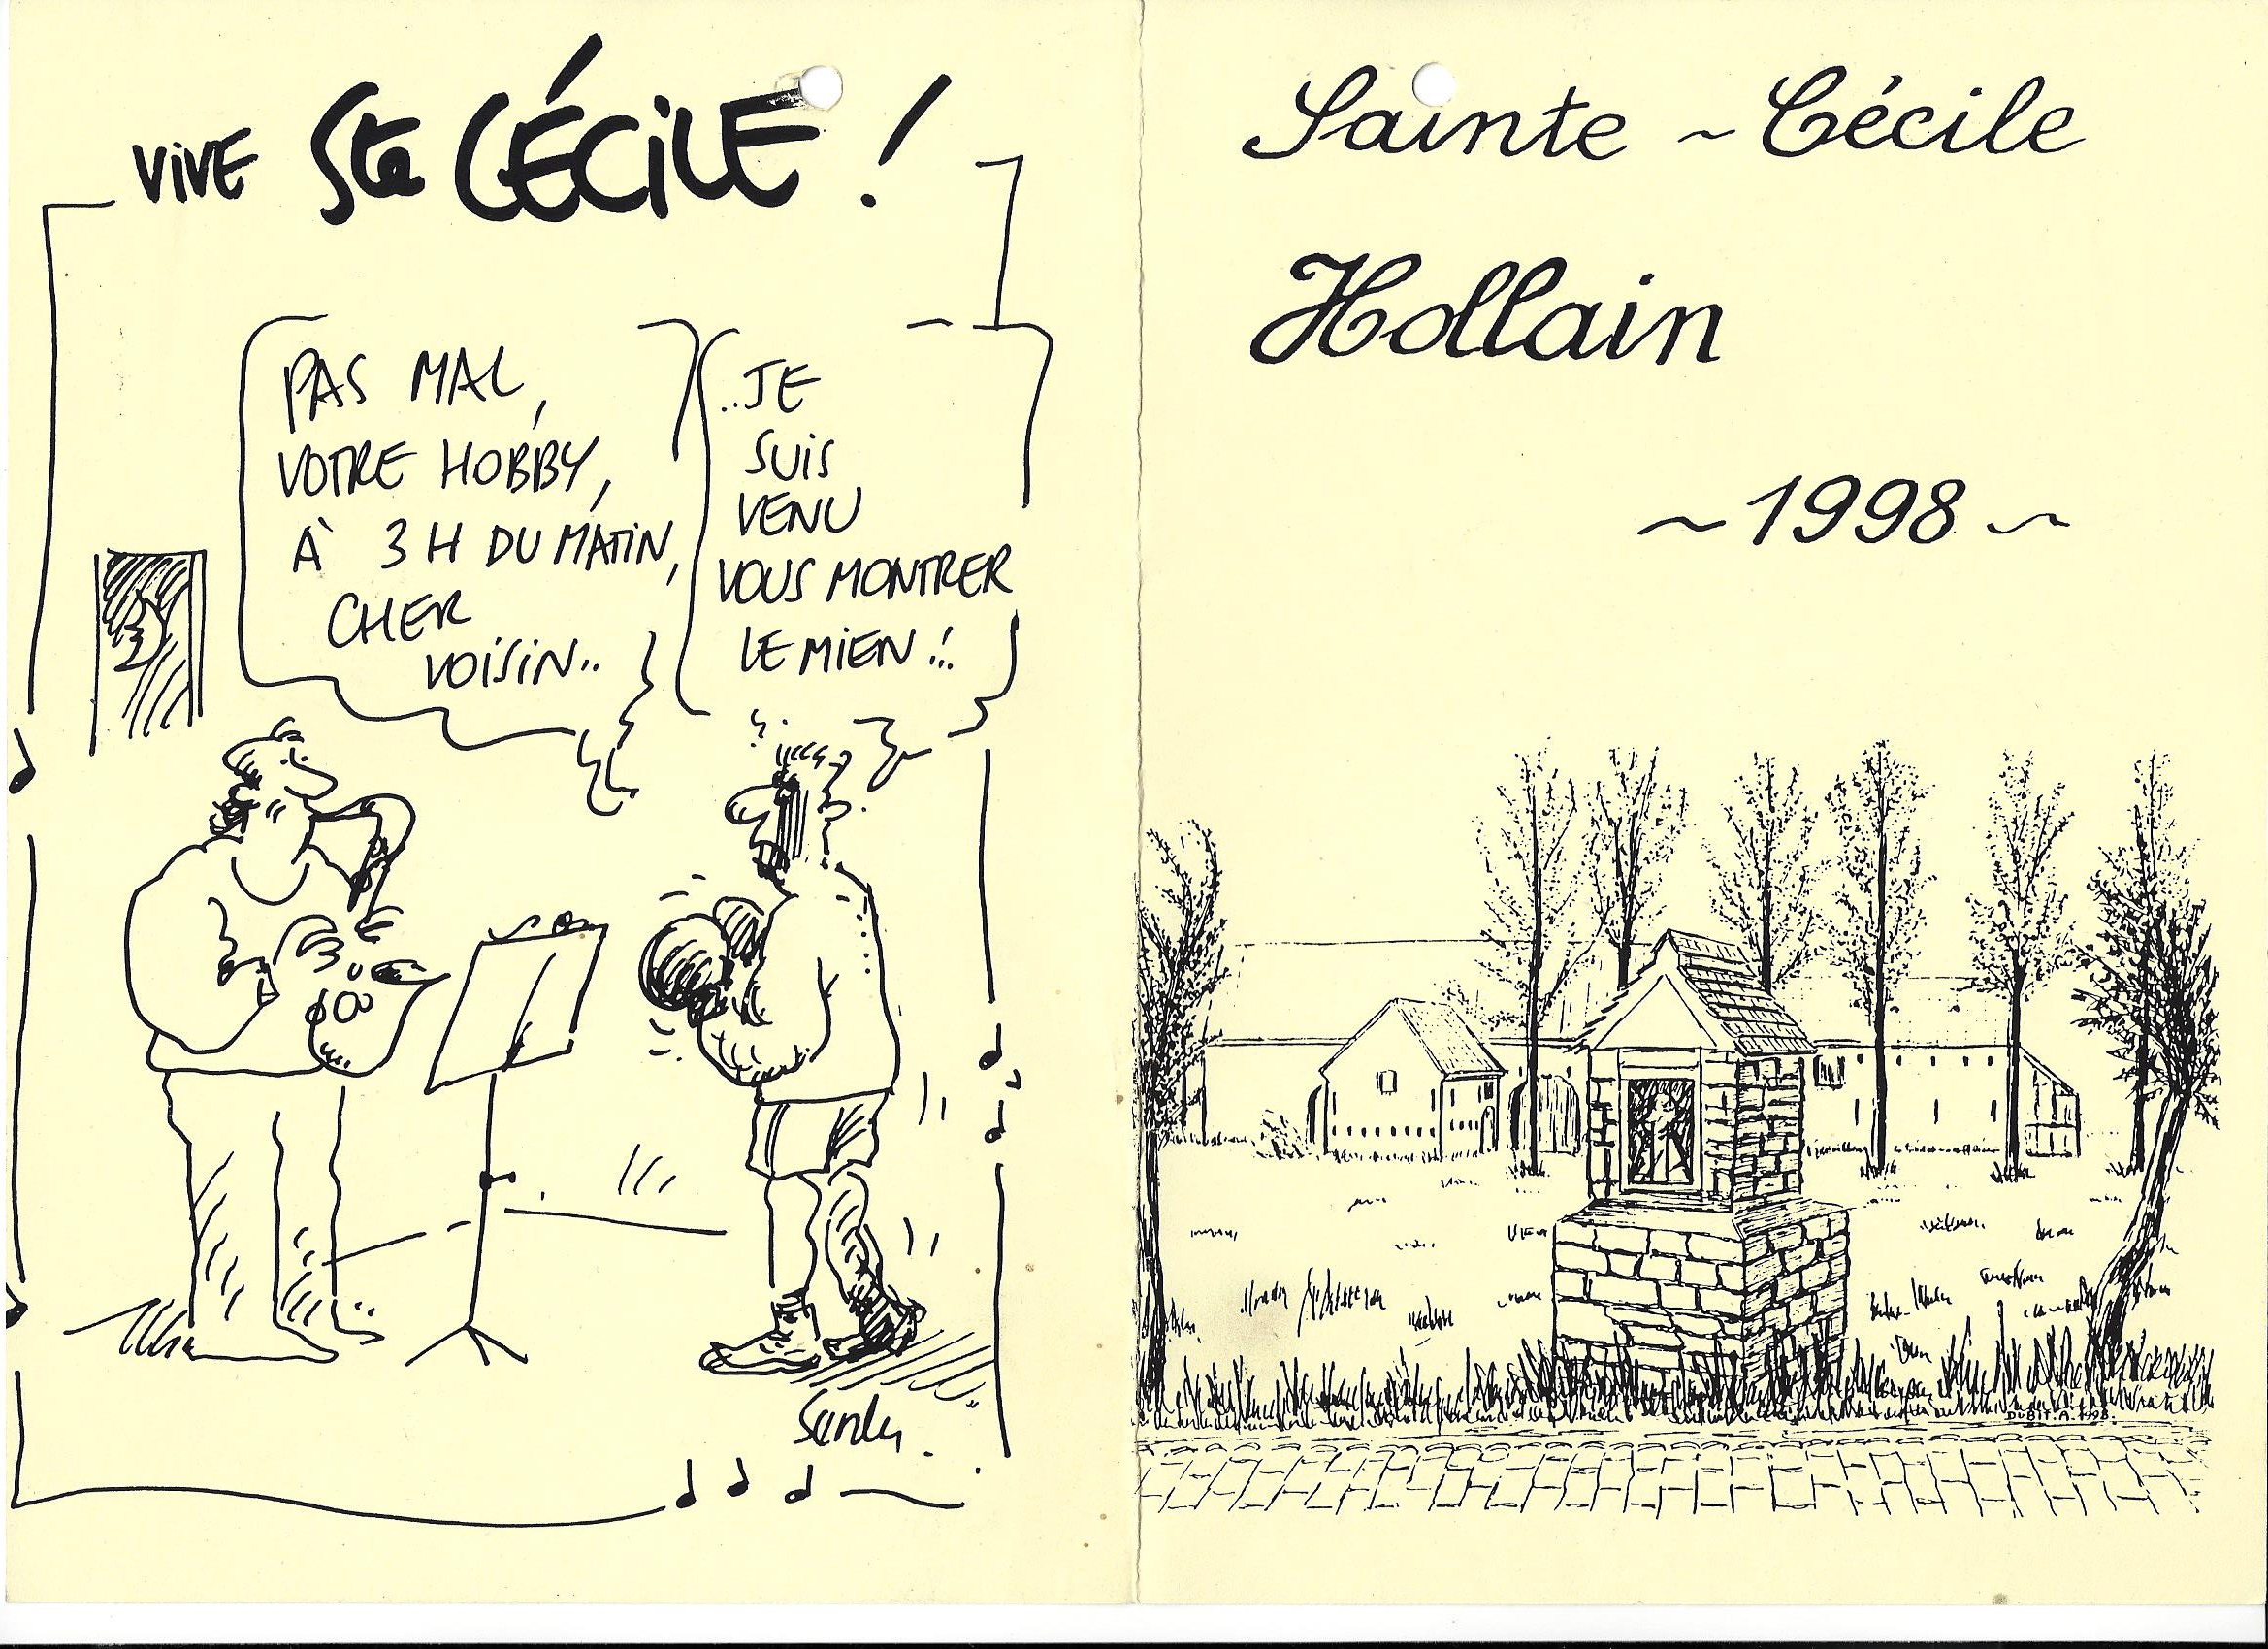 ViVE Ste CÉCiLE !
PAS MAL,
VOTRE HOBBY,
À 3 H DU MATiN,
CHER
VOiSiN..
..JE
SUiS
VENU
VOUS MONTRER
LE MiEN !..
Sainte ~ Cécile
Hollain
~ 1998 ~
DUBIT. A. 1998.